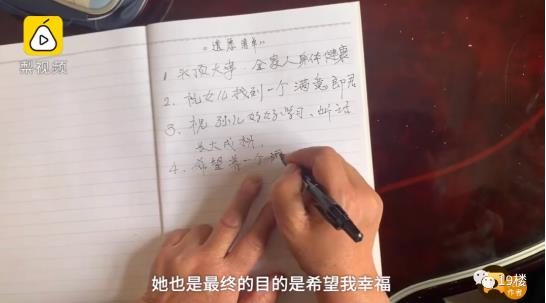 梨视频
遗愿清单
1 头顶大事,全家人身体健康
2. 祝女儿找到一个满意郎君
3、祝孙儿好好学习、听话
长大成材.
4、希望养一个
她也是最终的目的是希望我幸福
19楼
作者